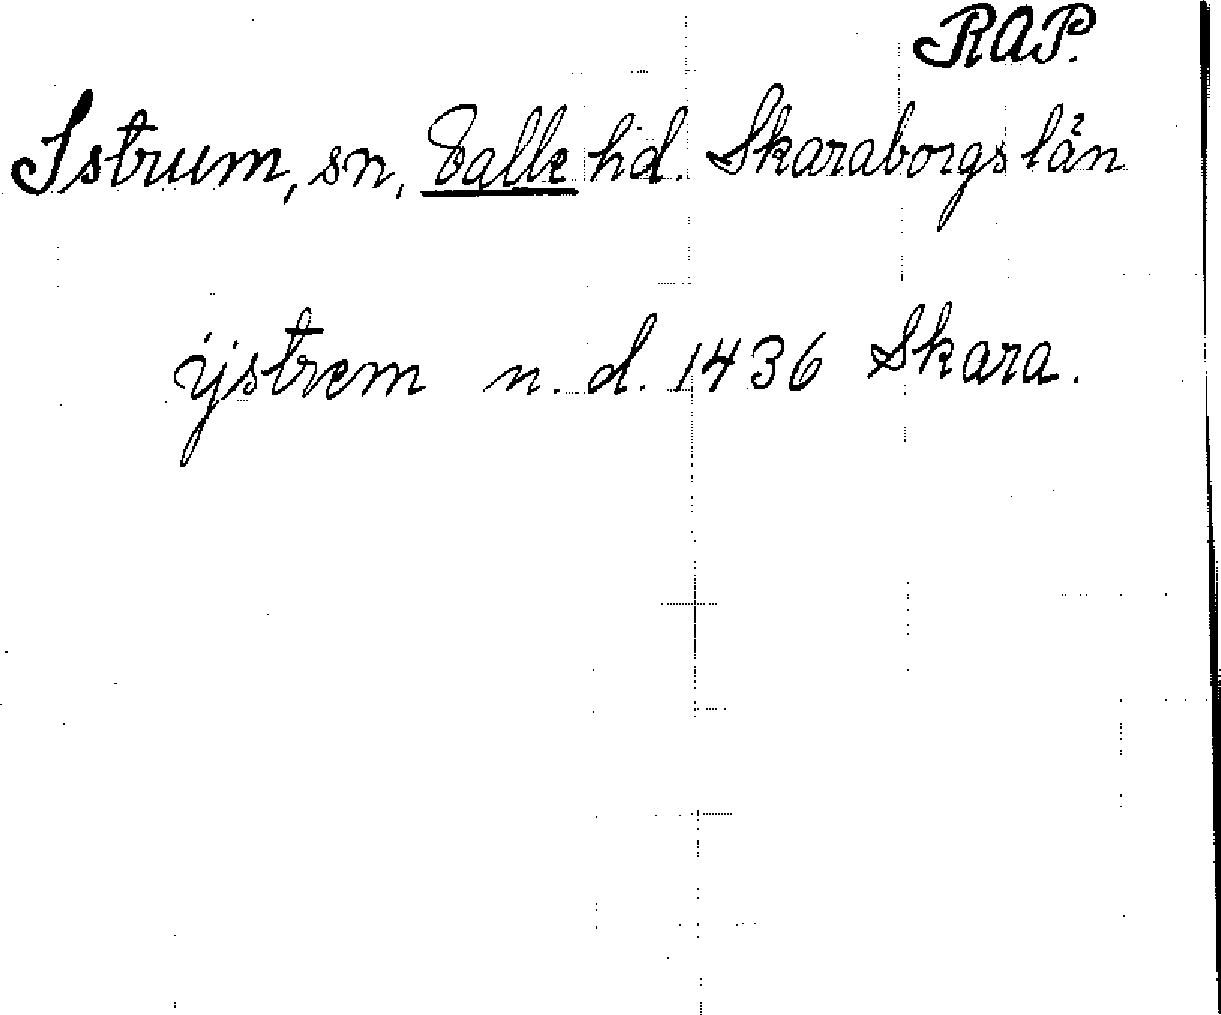 RAP.
Istrum, sn, Valle hd. Skaraborgs län
ÿstrem n. d. 1436 Skara.